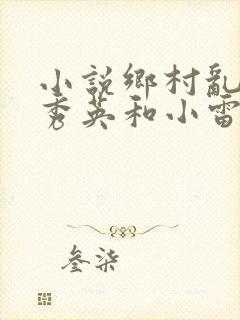 小説鄉村亂
秀英和小雷
叁柒